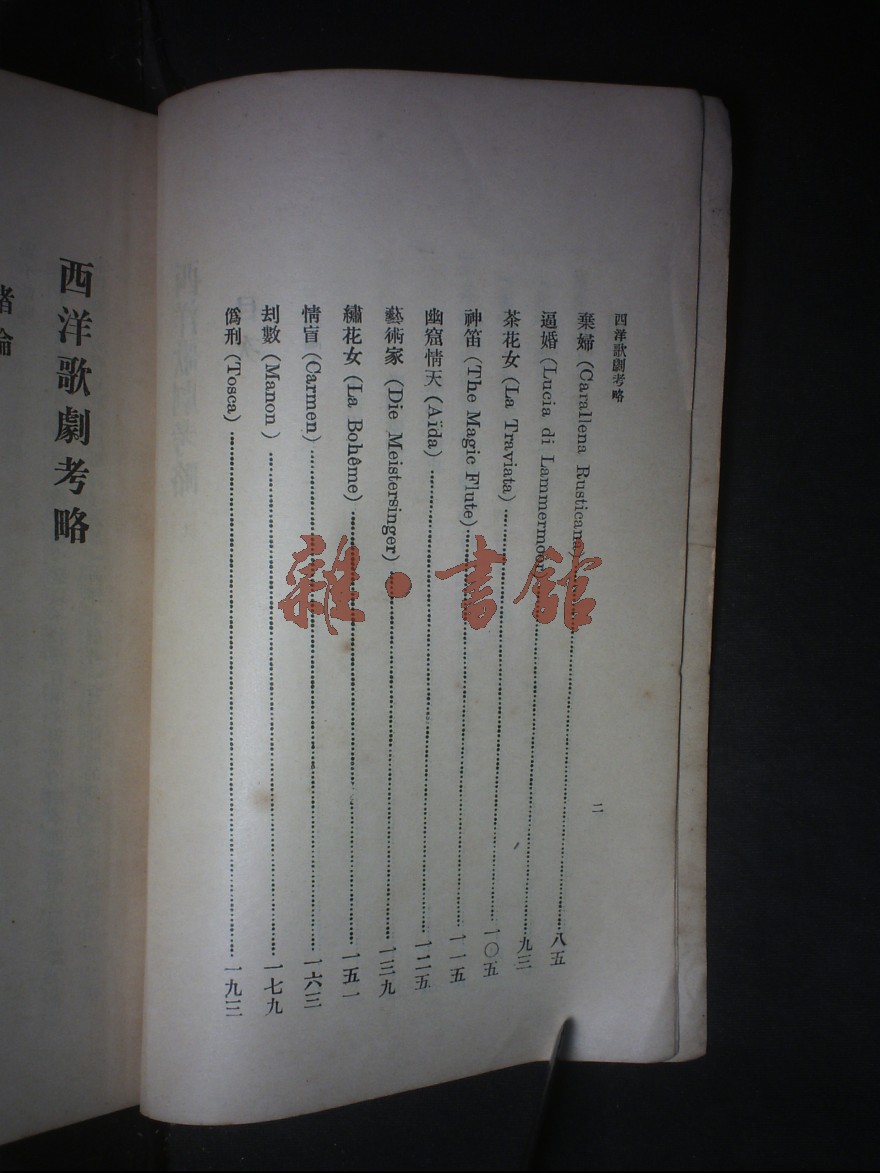 西洋歌劇考略
二
棄婦 (Carallena Rusticana)……八五
逼婚 (Lucia di Lammermoor)……九三
茶花女 (La Traviata)……一〇五
神笛 (The Magic Flute)……一一五
幽窟情天 (Aïda)……一二五
藝術家 (Die Meistersinger)……一三九
繡花女 (La Bohême)……一五一
情盲 (Carmen)……一六三
刦數 (Manon)……一七九
僞刑 (Tosca)……一九三
西洋歌劇考略
緒論
雜·書館